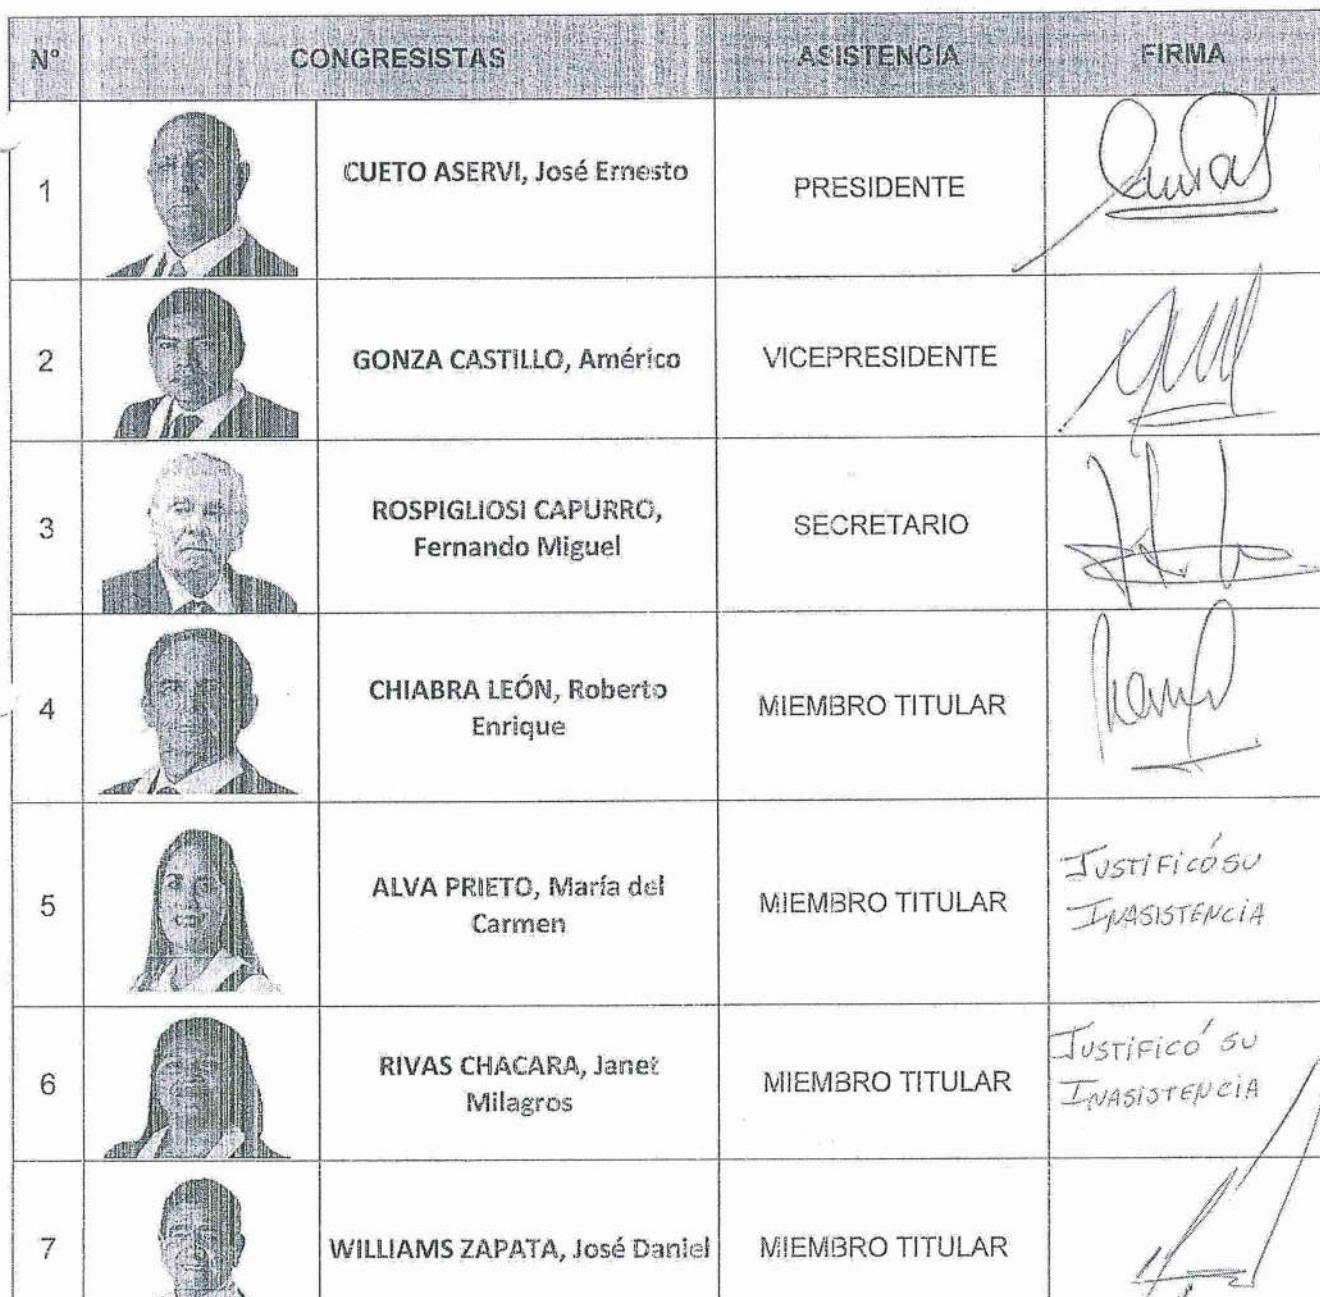 N° CONGRESISTAS ASISTENCIA FIRMA
1 CUETO ASERVI, José Ernesto PRESIDENTE
2 GONZA CASTILLO, Américo VICEPRESIDENTE
3 ROSPIGLIOSI CAPURRO,
Fernando Miguel SECRETARIO
4 CHIABRA LEÓN, Roberto
Enrique MIEMBRO TITULAR
5 ALVA PRIETO, María del
Carmen MIEMBRO TITULAR JUSTIFICÓ SU
INASISTENCIA
6 RIVAS CHACARA, Janet
Milagros MIEMBRO TITULAR JUSTIFICÓ SU
INASISTENCIA
7 WILLIAMS ZAPATA, José Daniel MIEMBRO TITULAR